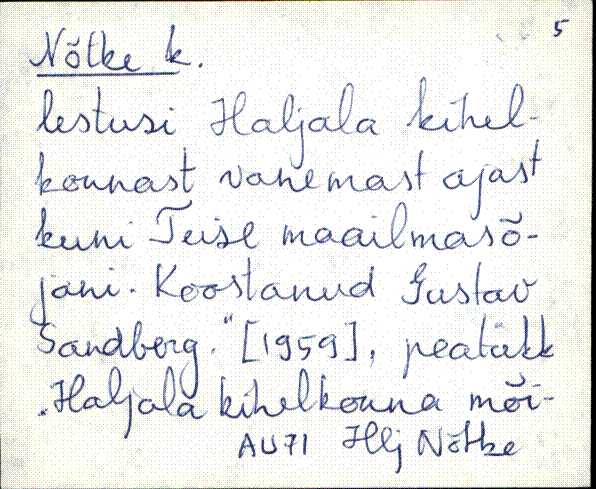 5
Nõtke k.
lestusi Haljala kihel-
konnast vanemast ajast
kuni Teise maailmasõ-
jani. Koostanud Gustav
Sandberg." [1959], peatükk
"Haljala kihelkonna mõi-
AU71 Hlj Nõtke